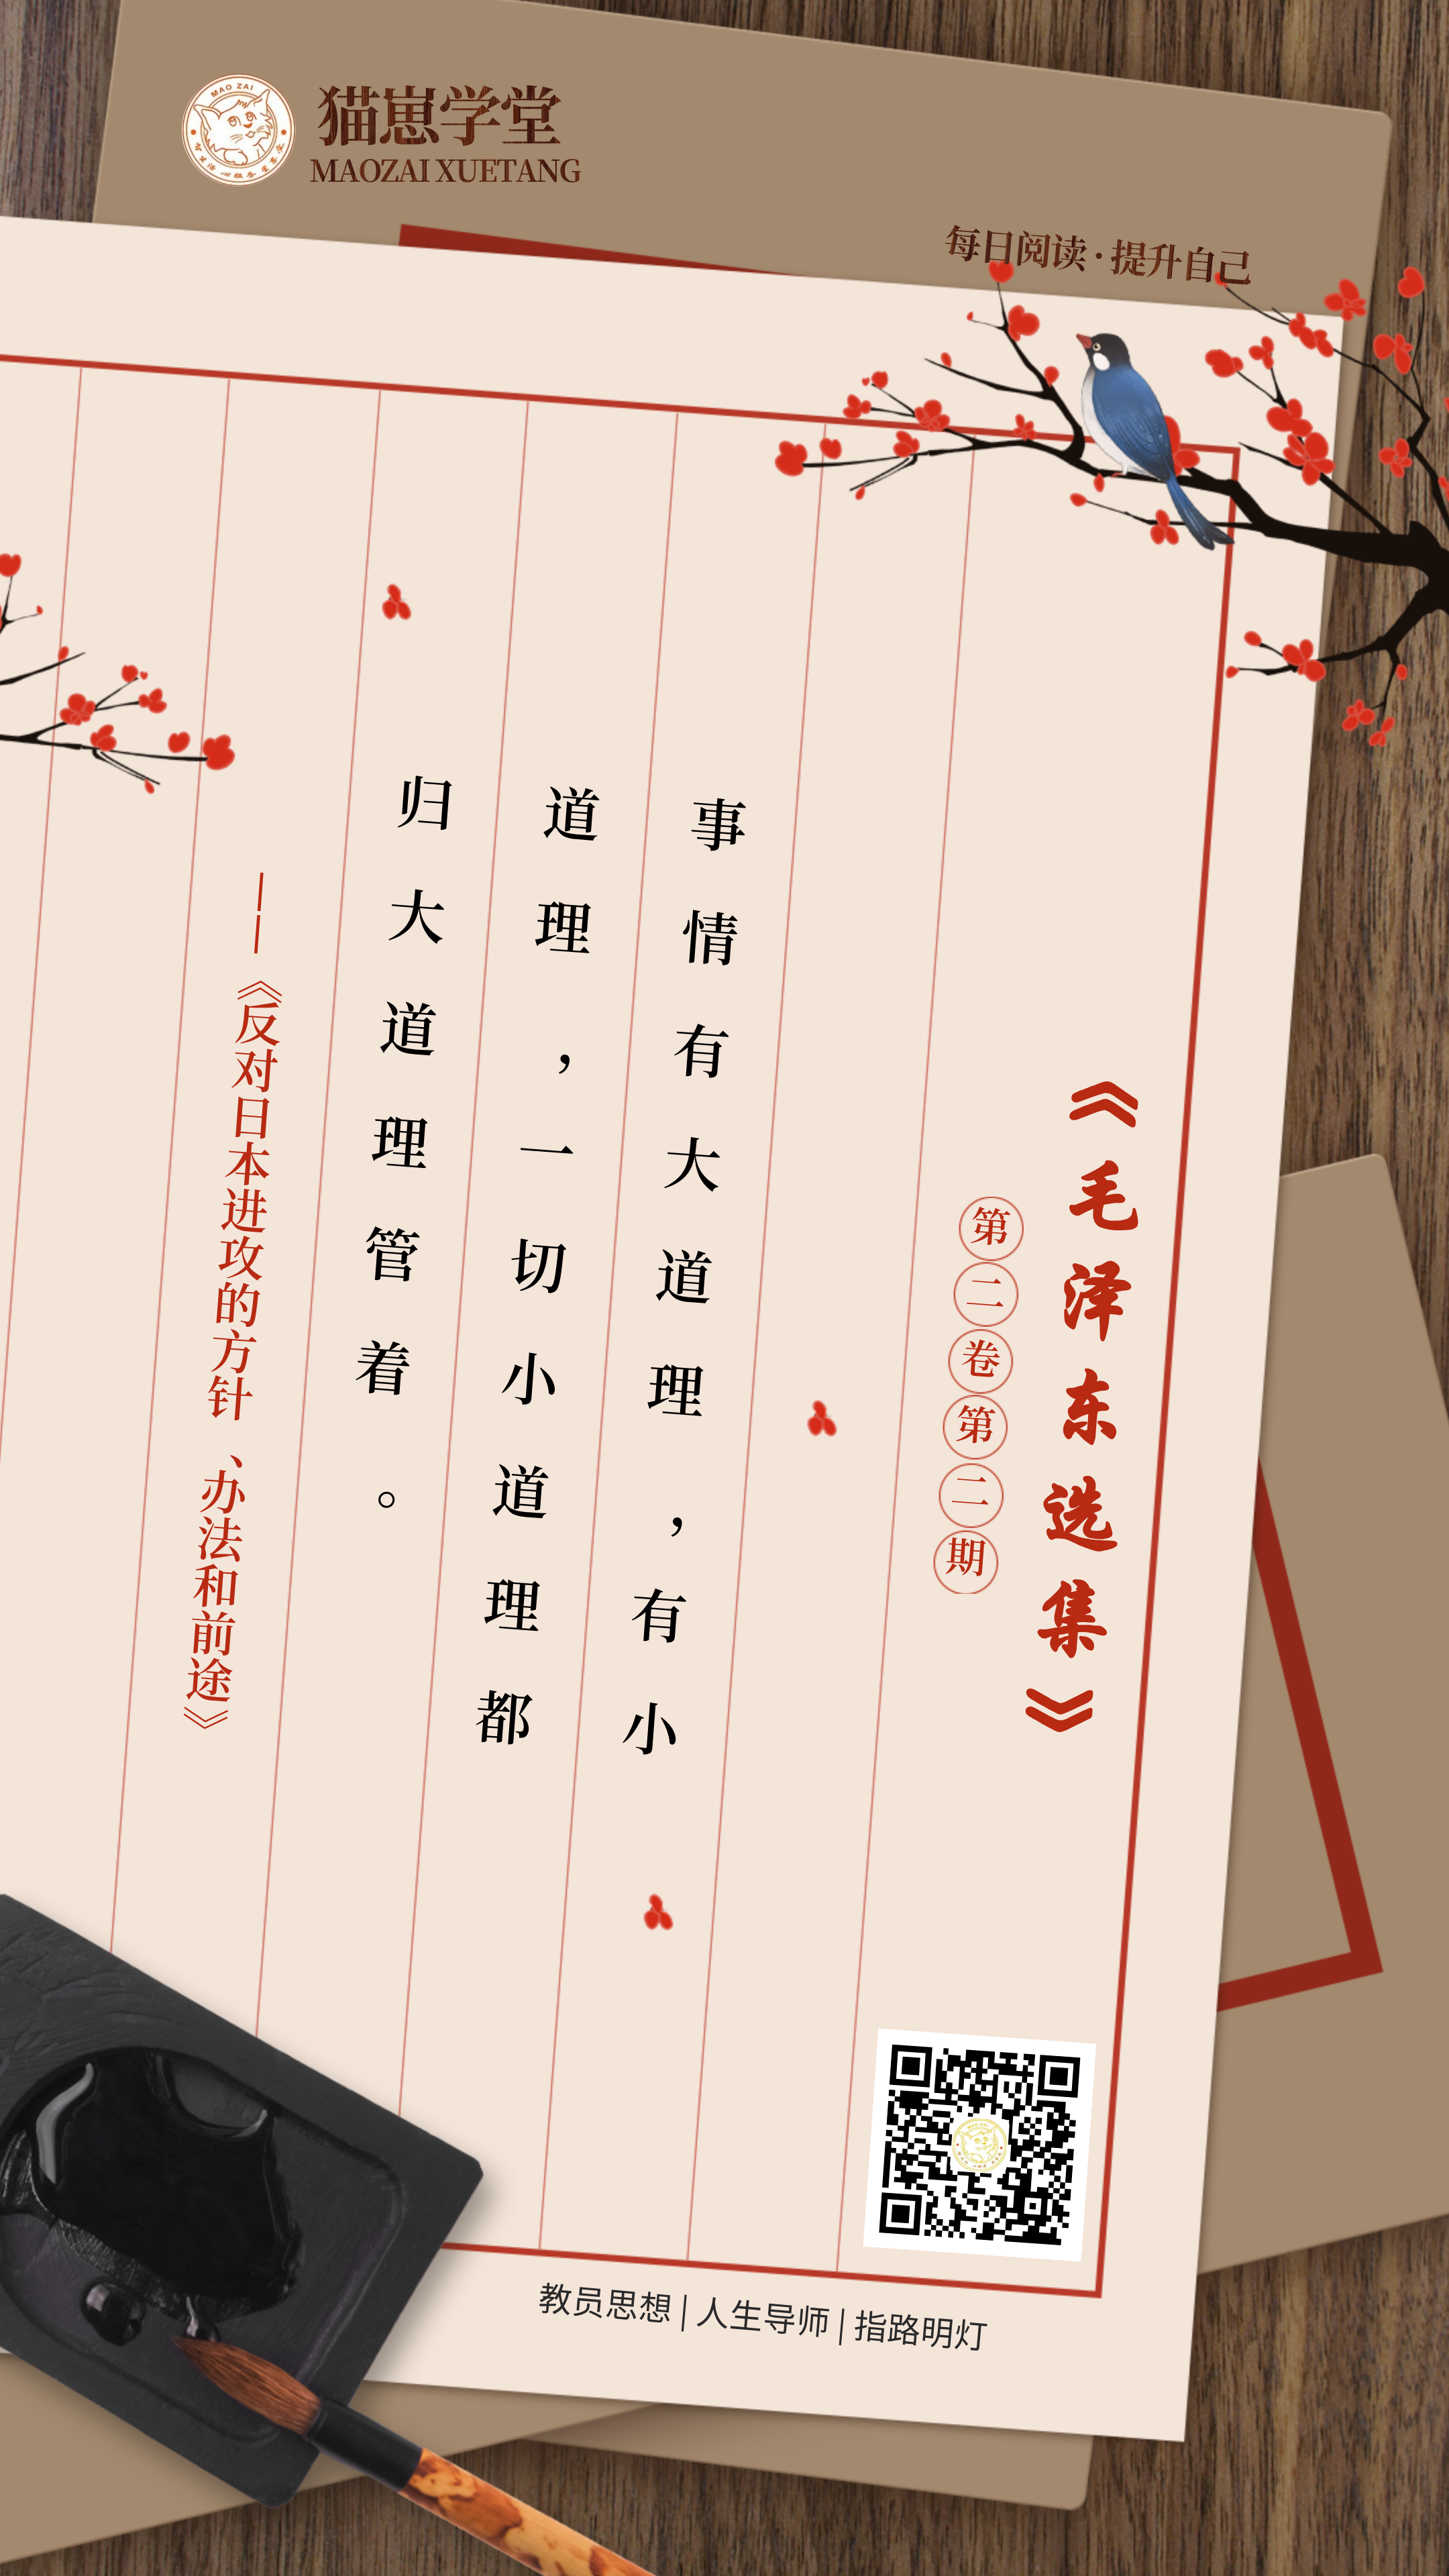 MAO ZAI
猫崽学堂
MAOZAI XUETANG
每日阅读·提升自己
《毛泽东选集》
第二卷第二期
事情有大道理，有小
道理，一切小道理都
归大道理管着。
——《反对日本进攻的方针、办法和前途》
教员思想|人生导师|指路明灯